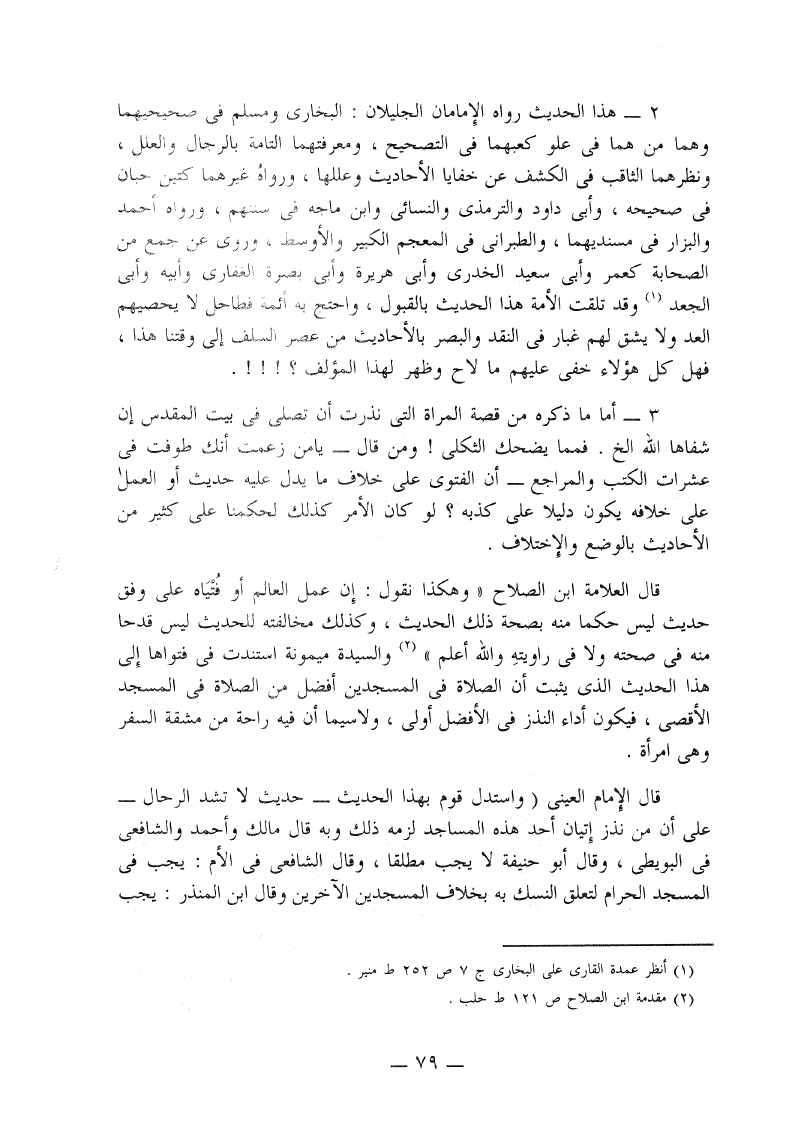 ٢ — هذا الحديث رواه الإمامان الجليلان : البخارى ومسلم فى صحيحيهما
وهما من هما فى علو كعبهما فى التصحيح ، ومعرفتهما التامة بالرجال والعلل ،
ونظرهما الثاقب فى الكشف عن خفايا الأحاديث وعللها ، ورواهُ غيرهما كتين حبان
فى صحيحه ، وأبى داود والترمذى والنسائى وابن ماجه فى سننهم ، ورواه أحمد
والبزار فى مسنديهما ، والطبرانى فى المعجم الكبير والأوسط ، وروى عن جمع من
الصحابة كعمر وأبى سعيد الخدرى وأبى هريرة وأبى بصرة الغفارى وأبيه وأبى
الجعد (١) وقد تلقت الأمة هذا الحديث بالقبول ، واحتج به أئمة فطاحل لا يحصيهم
العد ولا يشق لهم غبار فى النقد والبصر بالأحاديث من عصر السلف إلى وقتنا هذا ،
فهل كل هؤلاء خفى عليهم ما لاح وظهر لهذا المؤلف ؟ ! ! ! .
٣ — أما ما ذكره من قصة المراة التى نذرت أن تصلى فى بيت المقدس إن
شفاها الله الخ . فمما يضحك الثكلى ! ومن قال — يامن زعمت أنك طوفت فى
عشرات الكتب والمراجع — أن الفتوى على خلاف ما يدل عليه حديث أو العمل
على خلافه يكون دليلا على كذبه ؟ لو كان الأمر كذلك لحكمنا على كثير من
الأحاديث بالوضع والإختلاف .
قال العلامة ابن الصلاح « وهكذا نقول : إن عمل العالم أو فُتْيَاه على وفق
حديث ليس حكما منه بصحة ذلك الحديث ، وكذلك مخالفته للحديث ليس قدحا
منه فى صحته ولا فى راويتهِ والله أعلم » (٢) والسيدة ميمونة استندت فى فتواها إلى
هذا الحديث الذى يثبت أن الصلاة فى المسجدين أفضل من الصلاة فى المسجد
الأقصى ، فيكون أداء النذز فى الأفضل أولى ، ولاسيما أن فيه راحة من مشقة السفر
وهى امرأة .
قال الإمام العينى ( واستدل قوم بهذا الحديث — حديث لا تشد الرحال —
على أن من نذز إتيان أحد هذه المساجد لزمه ذلك وبه قال مالك وأحمد والشافعى
فى البويطى ، وقال أبو حنيفة لا يجب مطلقا ، وقال الشافعى فى الأم : يجب فى
المسجد الحرام لتعلق النسك به بخلاف المسجدين الآخرين وقال ابن المنذر : يجب
(١) أنظر عمدة القارى على البخارى ج ٧ ص ٢٥٢ ط منير .
(٢) مقدمة ابن الصلاح ص ١٢١ ط حلب .
— ٧٩ —